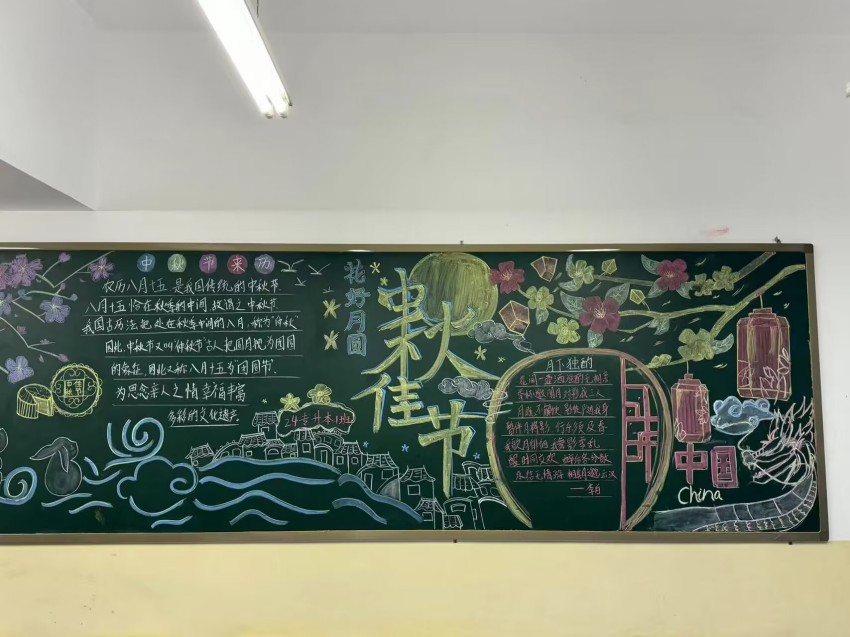 中秋节来历
农历八月十五,是我国传统的中秋节
八月十五恰在秋季的中间,故谓之中秋节
我国古历法把处在秋季中间的八月,称为"仲秋"
因此中秋节又叫"仲秋节"古人把圆月视为团圆
的象征,因此又称八月十五为"团圆节".
为思念亲人之情 幸福丰富
多彩的文化遗产
24专升本1班
花好月圆
中秋佳节
月下独酌
花间一壶酒 独酌无相亲
举杯邀明月 对影成三人
月既不解饮 影徒随我身
暂伴月将影 行乐须及春
我歌月徘徊 我舞影零乱
醒时同交欢 醉后各分散
永结无情游 相期邈云汉
——李白
中国
China